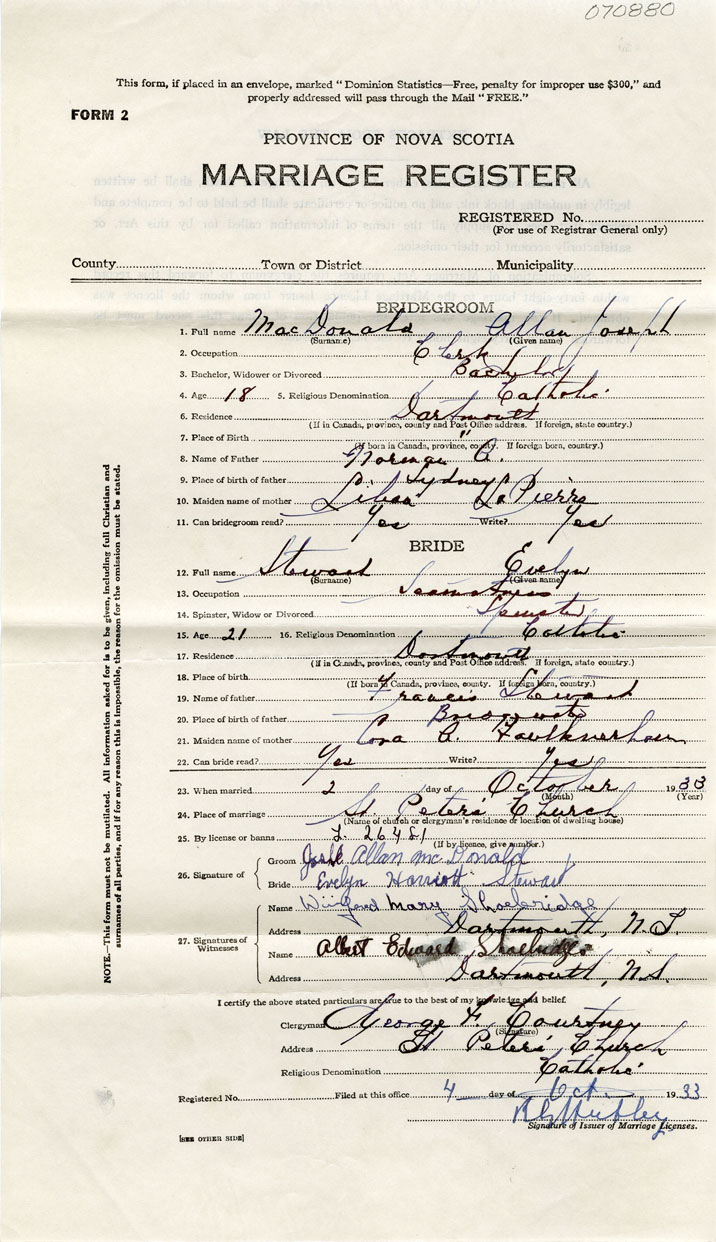 070880
This form, if placed in an envelope, marked "Dominion Statistics—Free, penalty for improper use $300," and
properly addressed will pass through the Mail "FREE."
FORM 2
PROVINCE OF NOVA SCOTIA
MARRIAGE REGISTER
REGISTERED No.
(For use of Registrar General only)
County Town or District Municipality
BRIDEGROOM
1. Full name MacDonald Allan Joseph
(Surname) (Given name)
2. Occupation Clerk
3. Bachelor, Widower or Divorced Bachelor
4. Age 18 5. Religious Denomination Catholic
6. Residence Dartmouth
(If in Canada, province, county and Post Office address. If foreign, state country.)
7. Place of Birth "
(If born in Canada, province, county. If foreign born, country.)
8. Name of Father Norman A.
9. Place of birth of father Sydney
10. Maiden name of mother Lilian La Pierre
11. Can bridegroom read? Yes Write? Yes
BRIDE
12. Full name Steward Evelyn
(Surname) (Given name)
13. Occupation Seamstress
14. Spinster, Widow or Divorced Spinster
15. Age 21 16. Religious Denomination Catholic
17. Residence Dartmouth
(If in Canada, province, county and Post Office address. If foreign, state country.)
18. Place of birth "
(If born in Canada, province, county. If foreign born, country.)
19. Name of father Francis Steward
20. Place of birth of father
21. Maiden name of mother Cora A.
22. Can bride read? Yes Write? Yes
23. When married 2 day of October 1933
(Month) (Year)
24. Place of marriage St. Peter's Church
(Name of church or clergyman's residence or location of dwelling house)
25. By license or banns L. 26481
(If by licence, give number.)
26. Signature of
Groom Allan McDonald
Bride Evelyn Harriott Steward
27. Signatures of Witnesses
Name Mary
Address Dartmouth, N.S.
Name Albert Edward
Address Dartmouth, N.S.
I certify the above stated particulars are true to the best of my knowledge and belief.
Clergyman George F. Courtney
(Signature)
Address St Peter's Church
Religious Denomination Catholic
Registered No. Filed at this office 4 day of Oct. 1933
Signature of Issuer of Marriage Licenses.
[SEE OTHER SIDE]
NOTE.—This form must not be mutilated. All information asked for is to be given, including full Christian and
surnames of all parties, and if for any reason this is impossible, the reason for the omission must be stated.